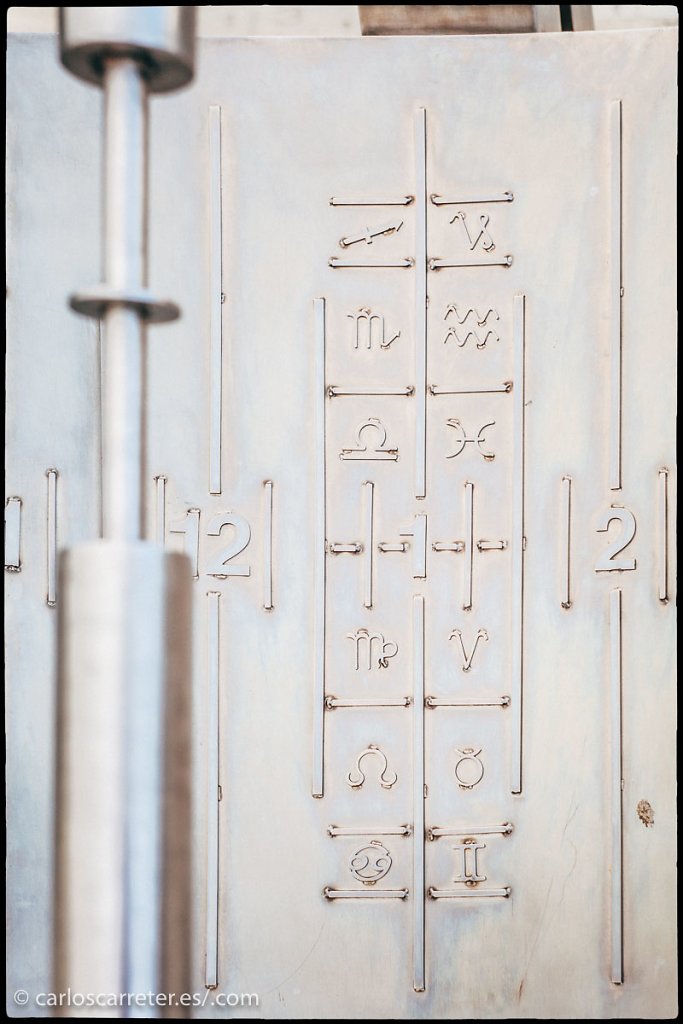 ♐ ♑
♏ ♒
♎ ♓
1 12 1 2
♍ ♈
♌ ♉
♋ ♊
© carloscarreter.es/.com